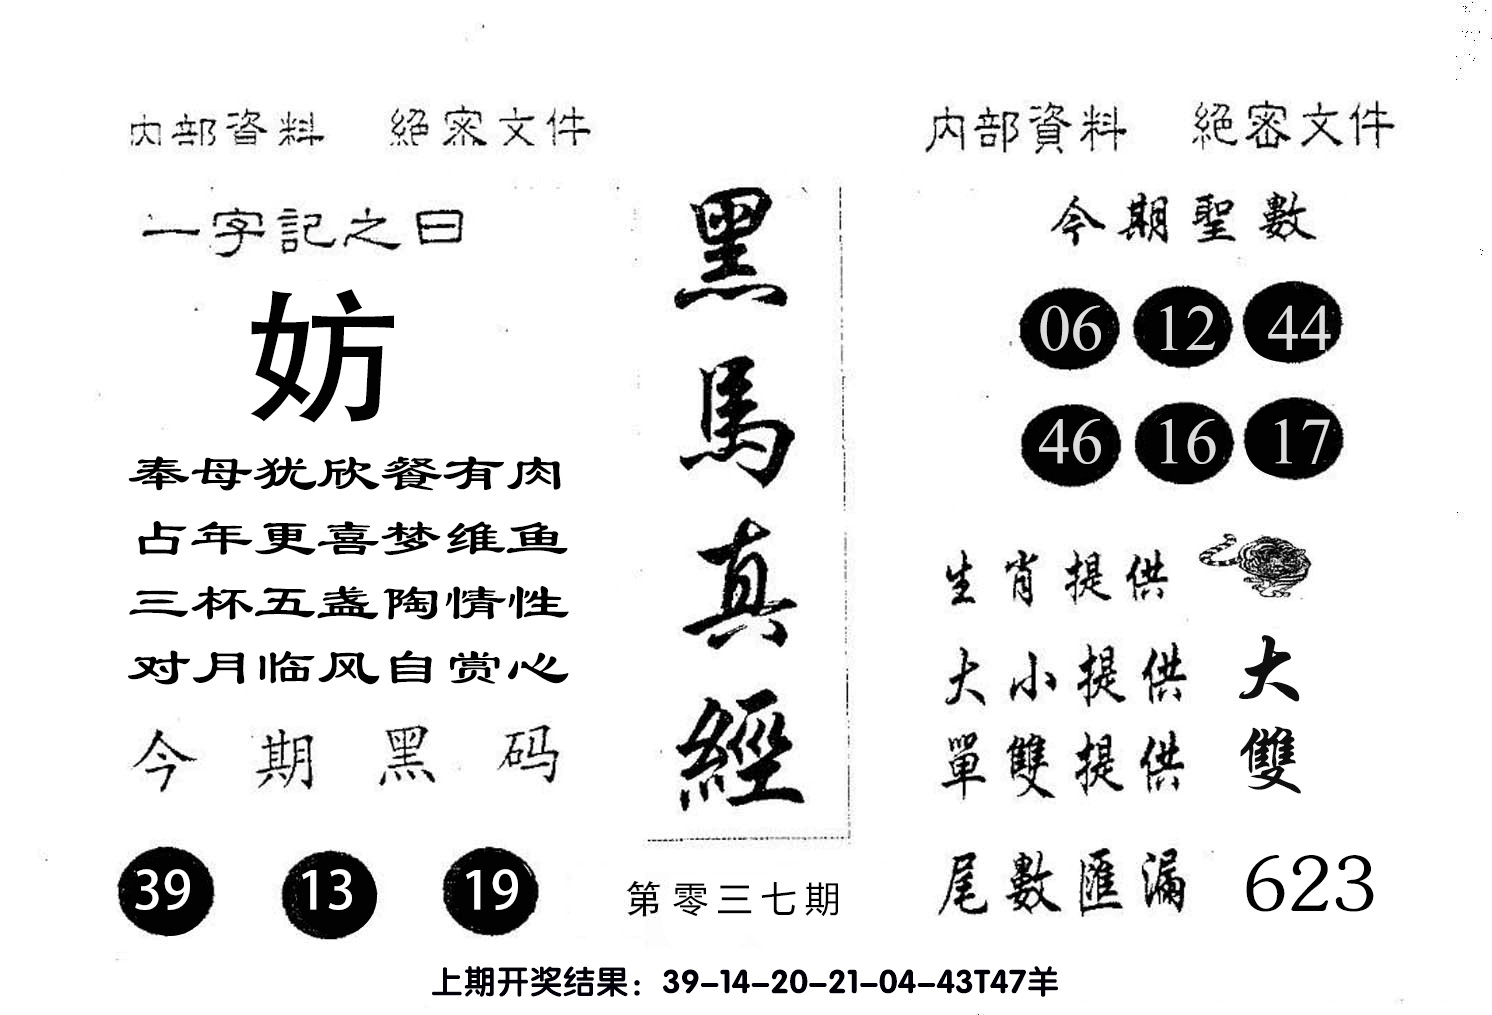 內部資料 絕密文件
一字記之曰
妨
奉母犹欣餐有肉
占年更喜梦维鱼
三杯五盏陶情性
对月临风自赏心
今期黑码
39 13 19
黑馬真經
第零三七期
內部資料 絕密文件
今期聖數
06 12 44
46 16 17
生肖提供
大小提供 大
單雙提供 雙
尾數匯漏 623
上期开奖结果：39-14-20-21-04-43T47羊